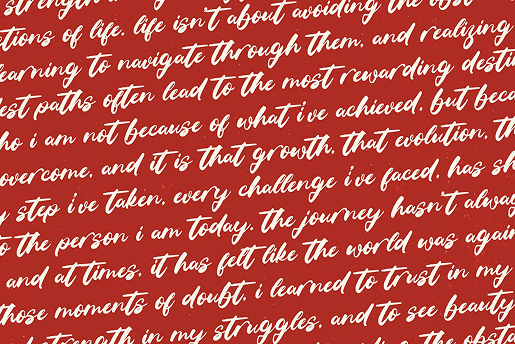 strength
ctions of life. life isn't about avoiding the obst
learning to navigate through them, and realizing
est paths often lead to the most rewarding destin
ho i am not because of what i've achieved, but beca
overcome, and it is that growth, that evolution, th
y step i've taken, every challenge i've faced, has sh
o the person i am today. the journey hasn't alway
and at times, it has felt like the world was again
those moments of doubt, i learned to trust in my
strength in my struggles, and to see beauty
the obsta